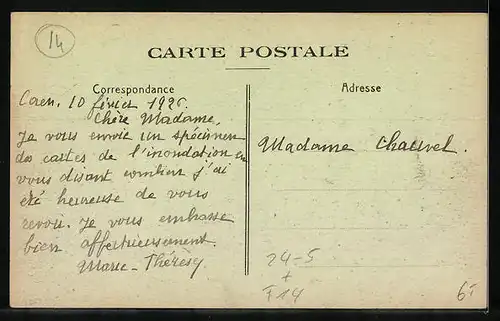 14
CARTE POSTALE
Correspondance
Adresse
Caen, 10 février 1926.
Chère Madame,
Je vous envoie un spécimen
des cartes de l'inondation en
vous disant combien j'ai
été heureuse de vous
revoir. Je vous embrasse
bien affectueusement.
Marie-Thérèse
Madame Chauvel.
24-5
+
F14